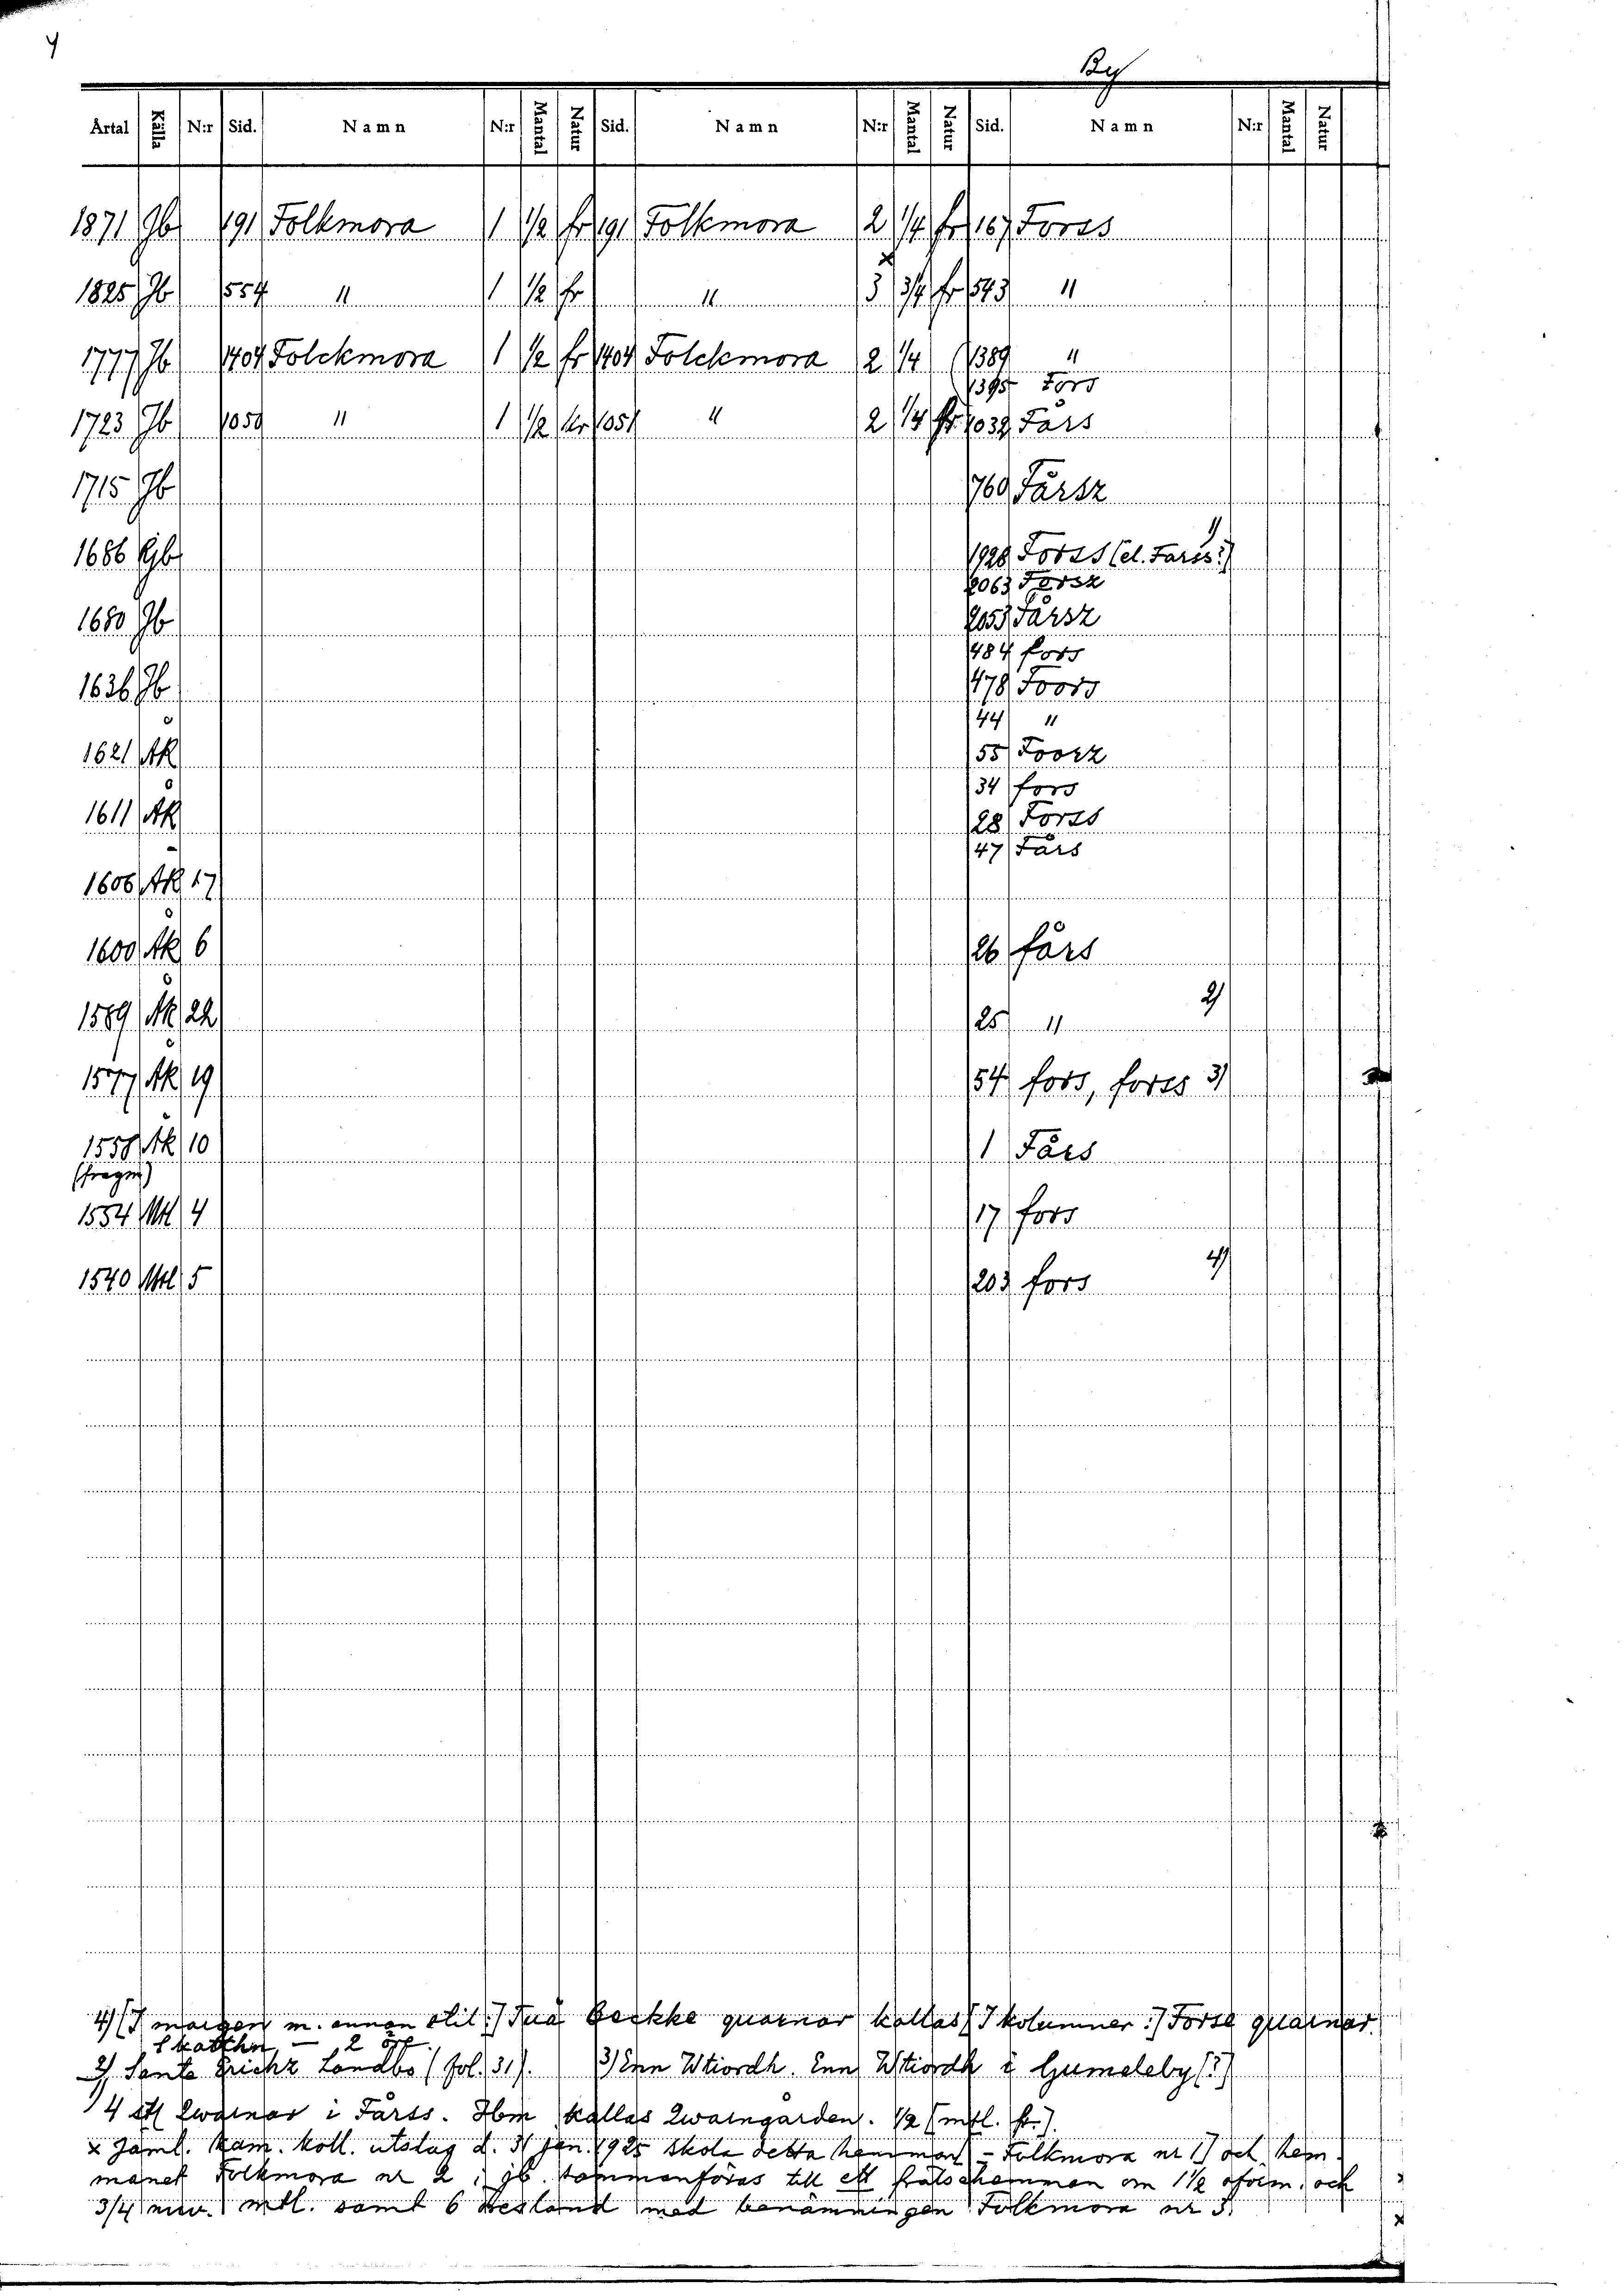 4
By
Årtal Källa N:r Sid. Namn N:r Mantal Natur Sid. Namn N:r Mantal Natur Sid. Namn N:r Mantal Natur
1871 Jb 191 Folkmora 1 1/2 fr 191 Folkmora 2 1/4 fr 167 Forss
x
1825 Jb 554 " 1 1/2 fr " 3 3/4 fr 543 "
1777 Jb 1404 Folckmora 1 1/2 fr 1404 Folckmora 2 1/4 1389 "
1395 Fors
1723 Jb 1050 " 1 1/2 kr 1051 " 2 1/4 fr 1032 Fårs
1715 Jb 760 Fårsz
1686 Jb 1928 Forss (el. Farss?) 1)
2063 Forsz
1680 Jb 2053 Fårsz
484 fors
1636 Jb 478 Foors
44 "
1621 ÅK 55 Foorz
34 fors
1611 ÅK 28 Forss
47 Fårs
1606 ÅK 17
1600 ÅK 6 26 fårs
1589 ÅK 22 25 " 2)
1577 ÅK 19 54 fors, forss 3)
1558 ÅK 10 1 Fårs
(fragm)
1554 Mtl 4 17 fors
1540 Mtl 5 203 fors 4)
4) [I margen m. annan stil:] Tuå Beckke quarnar kallas [I kolumner:] Forse quarnar
Skatthn — 2 öre
2) Sante Erichz Landbo (fol. 31). 3) Enn Wtiordh. Enn Wtiordh i Gumeleby [?]
1) 4 st Qwarnar i Fårss. Hbm kallas Qwarngården. 1/2 [mtl. fr.].
x Jäml. Kam. koll. utslag d. 31 jan. 1925 skola detta hemman [= Folkmora nr 1] och hem-
manet Folkmora nr 2 i jb. sammanföras till ett frälsehemman om 1 1/2 oförm. och
3/4 nuv. mtl. samt 6 öresland med benämningen Folkmora nr 3.